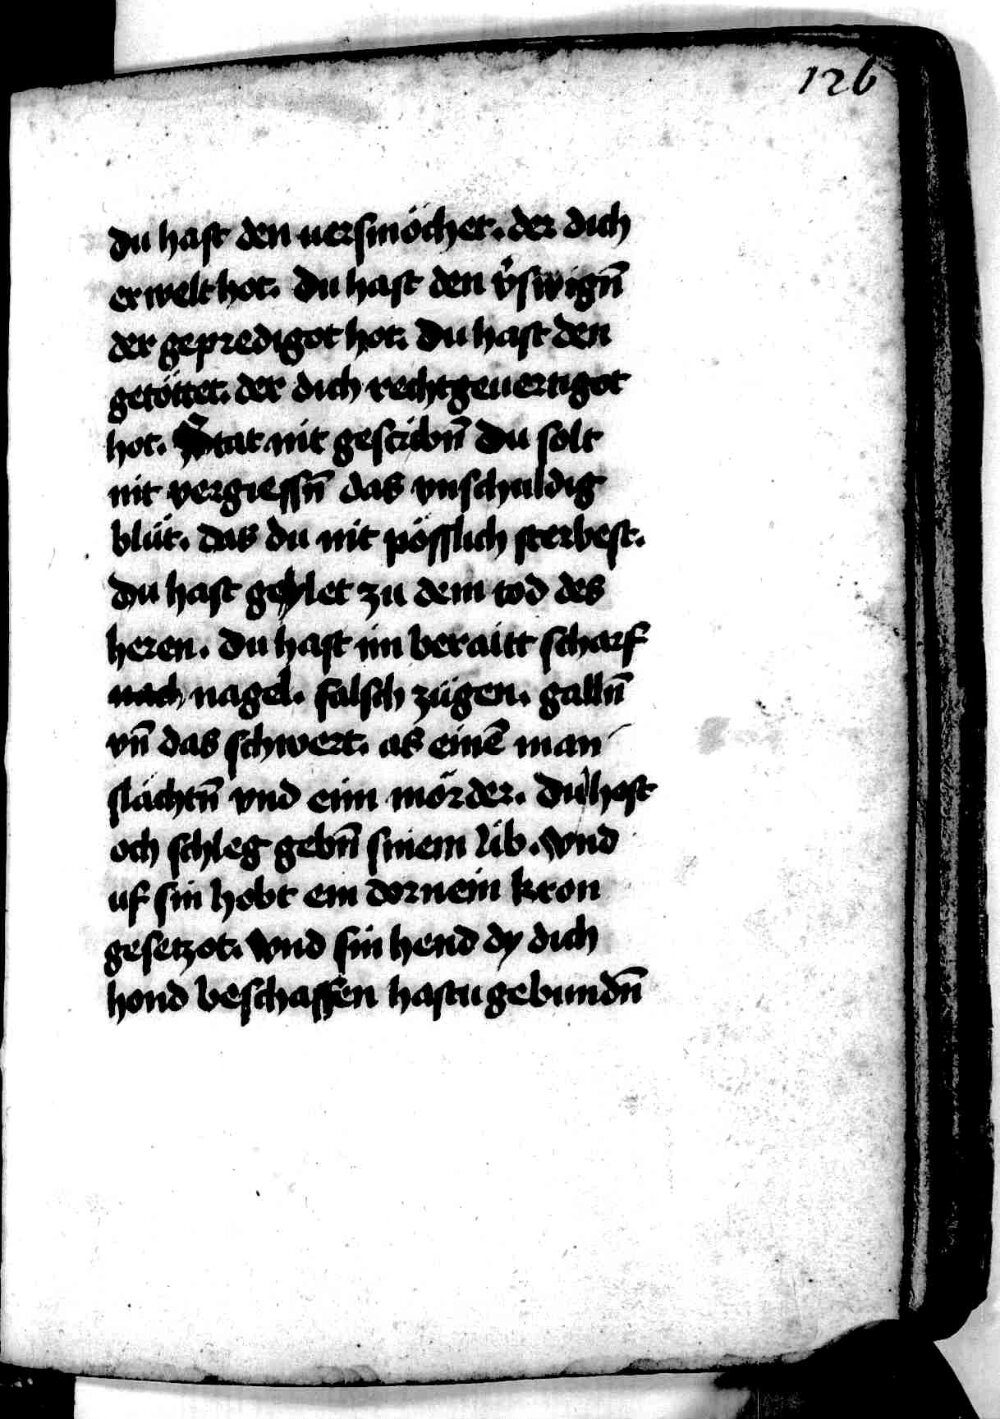 126
du hast den uersmöchet. der dich
erwelt hot. Du hast den v̉swign̄
der gepredigot hot. Du hast den
getöttet. der dich rechtgeuertigot
hot. Stat nit gescribn̄ Du solt
nit vergiessn̄ das vnschuldig
blüt. das du nit pösslich sterbest.
Du hast geylet zu dem tod des
heren. Du hast im beraitt scharf
nach nagel. falsch zügen. galln̄
vn̄ das schwert. as einē man
slachtn̄ vnd eim mörder. Du host
och schleg gebn̄ sinem lib. Vnd
uf sin hobt ein dornein kron
gesetzot. Vnd sin hend dy dich
hond beschaffen hastu gebundn̄